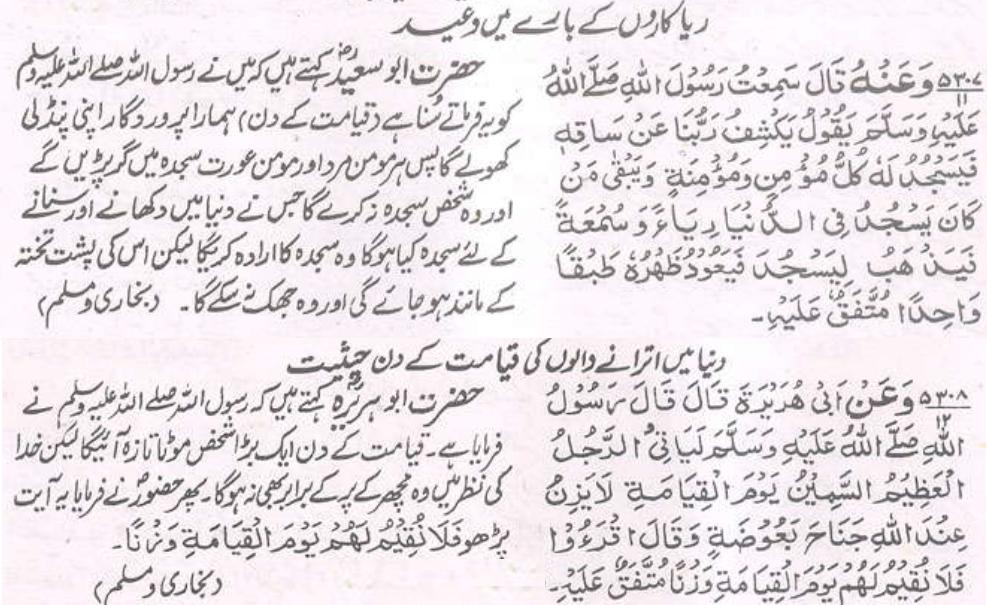 ریا کاروں کے بارے میں وعید
۵۳۰۷ وَعَنْهُ قَالَ سَمِعْتُ رَسُوْلَ اللهِ صَلَّى اللهُ
۱۱
عَلَيْهِ وَسَلَّمَ يَقُوْلُ يَكْشِفُ رَبُّنَا عَنْ سَاقِهٖ
فَيَسْجُدُ لَهٗ كُلُّ مُؤْمِنٍ وَّمُؤْمِنَةٍ وَيَبْقٰى مَنْ
كَانَ يَسْجُدُ فِى الدُّنْيَا رِيَاءً وَّ سُمْعَةً
فَيَذْهَبُ لِيَسْجُدَ فَيَعُوْدُ ظَهْرُهٗ طَبَقًا
وَاحِدًا مُتَّفَقٌ عَلَيْهِ۔
حضرت ابو سعیدؓ کہتے ہیں کہ میں نے رسول اللہ صلے اللہ علیہ وسلم
کو یہ فرماتے سُنا ہے (قیامت کے دن) ہمارا پروردگار اپنی پنڈلی
کھولے گا پس ہر مومن مرد اور مومن عورت سجدہ میں گر پڑیں گے
اور وہ شخص سجدہ نہ کرے گا جس نے دنیا میں دکھانے اور سنانے
کے لئے سجدہ کیا ہوگا وہ سجدہ کا ارادہ کریگا لیکن اس کی پشت تختہ
کے مانند ہو جائے گی اور وہ جھک نہ سکے گا۔ (بخاری و مسلم)
دنیا میں اترانے والوں کی قیامت کے دن حیثیت
۵۳۰۸ وَعَنْ اَبِىْ هُرَيْرَةَ قَالَ قَالَ رَسُوْلُ
۱۲
اللهِ صَلَّى اللهُ عَلَيْهِ وَسَلَّمَ لَيَاْتِى الرَّجُلُ
الْعَظِيْمُ السَّمِيْنُ يَوْمَ الْقِيَامَةِ لَا يَزِنُ
عِنْدَ اللهِ جَنَاحَ بَعُوْضَةٍ وَقَالَ اقْرَءُوْا
فَلَا نُقِيْمُ لَهُمْ يَوْمَ الْقِيَامَةِ وَزْنًا مُتَّفَقٌ عَلَيْهِ۔
حضرت ابو ہریرہؓ کہتے ہیں کہ رسول اللہ صلے اللہ علیہ وسلم نے
فرمایا ہے۔ قیامت کے دن ایک بڑا شخص موٹا تازہ آئیگا لیکن خدا
کی نظر میں وہ مچھر کے پر کے برابر بھی نہ ہوگا۔ پھر حضورؐ نے فرمایا یہ آیت
پڑھو فَلَا نُقِيْمُ لَهُمْ يَوْمَ الْقِيَامَةِ وَزْنًا۔
(بخاری و مسلم)